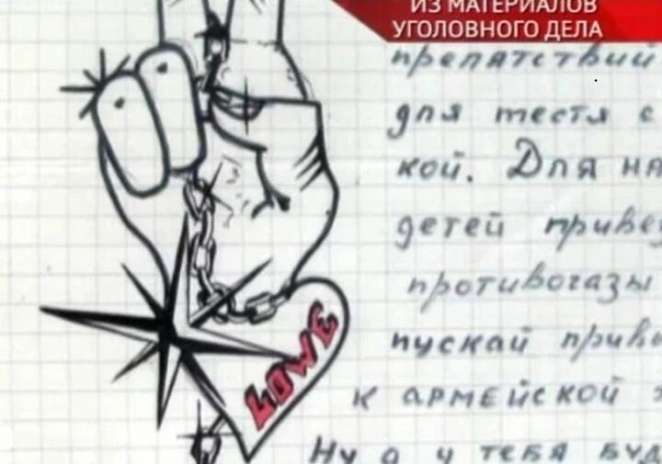 ИЗ МАТЕРИАЛОВ
УГОЛОВНОГО ДЕЛА
препятствий
для тестя с
кой. Для
детей
противогазы
LOWE
пускай
к армейской
Ну а у тебя